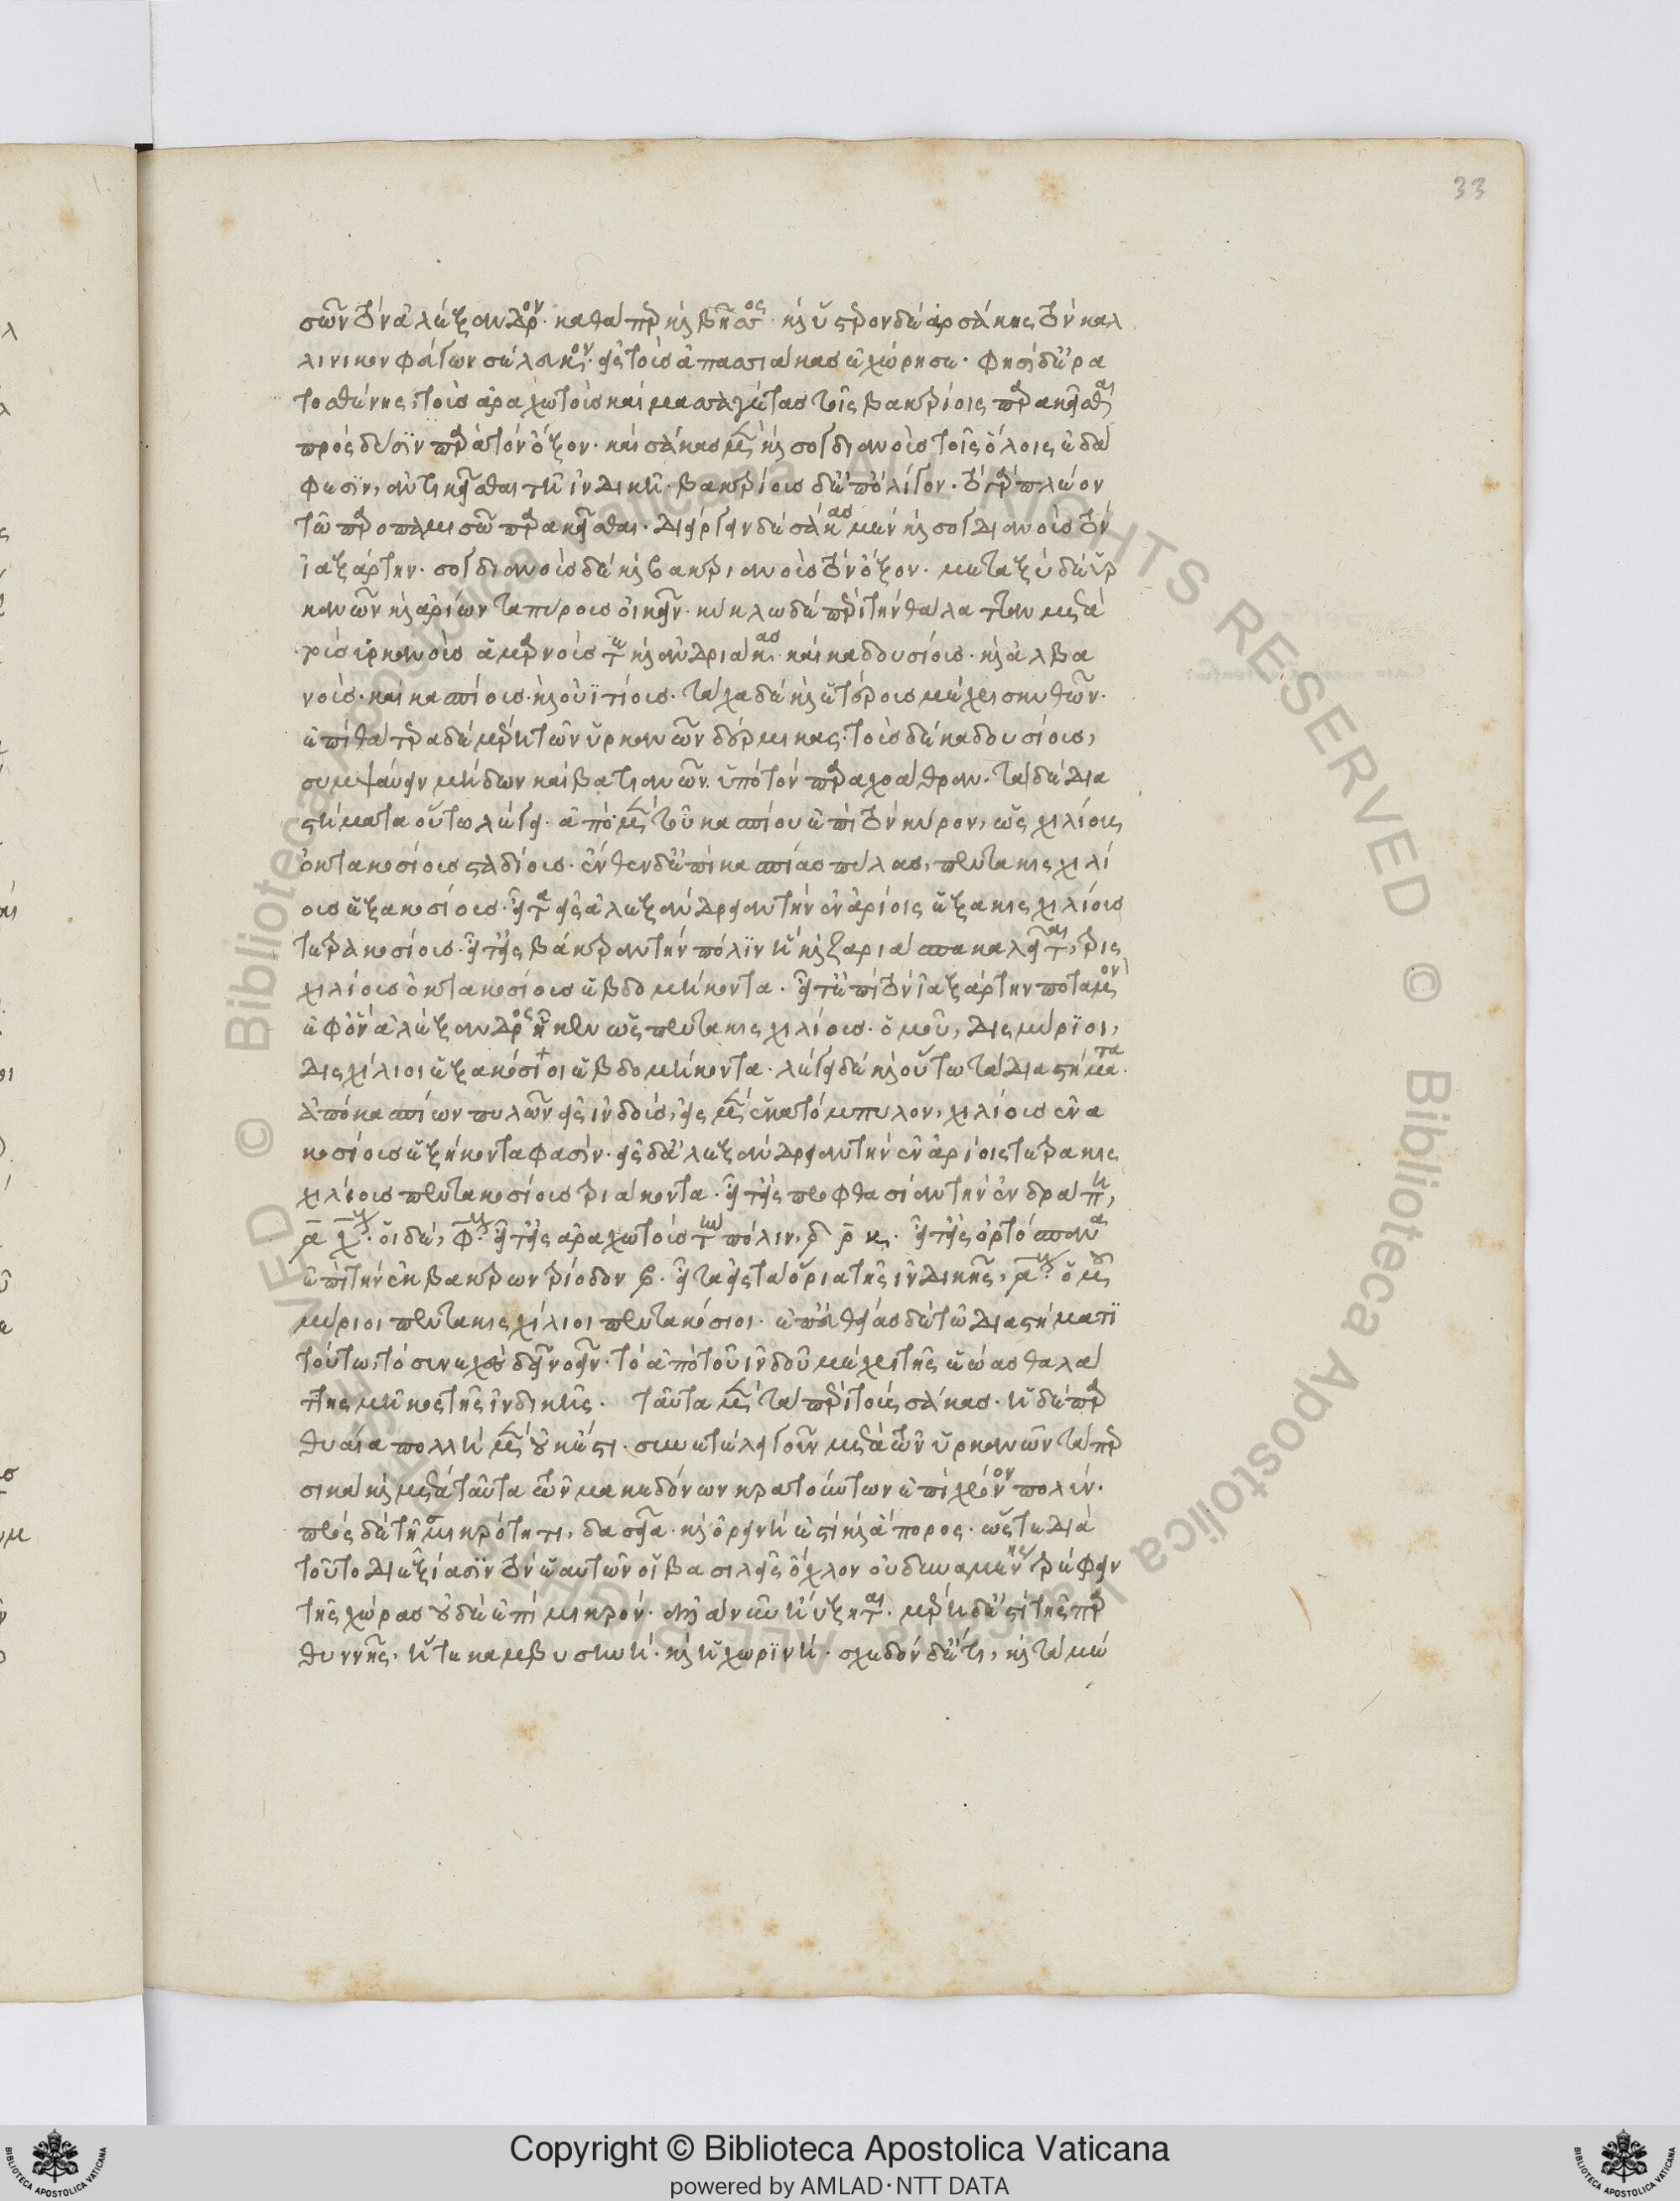 33
σῶν τὸν ἀλέξανδρον· καθάπερ καὶ βῆσσος· καὶ ὕστερον δὲ ἀρσάκης τὸν καλ
λίνικον φεύγων σέλευκον· εἰς τοὺς ἀπασιάκας ἐχώρησε· φησὶ δ᾽ ἐρα
τοσθένης, τοὺς ἀραχωτοὺς καὶ μασσαγέτας τοῖς βακτρίοις παρακεῖσθαι
πρὸς δύσιν παρὰ τὸν ὄξον· καὶ σάκας μὲν καὶ σογδιανοὺς τοῖς ὅλοις ἐδά
φεσιν, ἀντικεῖσθαι τῆ ἰνδικῆ· βακτρίους δ᾽ ἐπ᾽ ὀλίγον· τὸ γὰρ πλέον
τῶ παροπαμισῶ παρακεῖσθαι· διείργειν δὲ σάκας μὲν καὶ σογδιανοὺς τὸν
ἰαξάρτην· σογδιανοὺς δὲ καὶ βακτριανοὺς τὸν ὄξον· μεταξὺ δὲ ὑρ
κανῶν καὶ ἀρίων ταπύρους οἰκεῖν· κύκλω δὲ περὶ τὴν θάλατταν μετὰ
τοὺς ὑρκανοὺς ἀμάρνους τε καὶ ἀνδριάκας· καὶ καδδουσίους· καὶ ἀλβα
νούς· καὶ κασπίους· καὶ οὐιτίους· τάχα δὲ καὶ ἑτέρους μέχρι σκυθῶν·
ἐπὶ θάτερα δὲ μέρη τῶν ὑρκανῶν δέρμικας· τοὺς δὲ καδδουσίους,
συμψαύειν μήδων καὶ βατιανῶν ὑπὸ τὸν παραχοάθραν· τὰ δὲ δια
στήματα οὕτω λέγει· ἀπὸ μὲν τοῦ κασπίου ἐπὶ τὸν κύρον, ὡς χιλίους
ὀκτακοσίους σταδίους· ἔνθεν δ᾽ ἐπὶ κασπίας πύλας, πεντακισχιλί
ους ἑξακοσίους· εἶτ᾽ εἰς ἀλεξάνδρειαν τὴν ἐν ἀρίοις ἑξακισχιλίους
τετρακοσίους· εἶτ᾽ εἰς βάκτραν τὴν πόλιν ἣ καὶ ζαριάσπα καλεῖται, τρισ
χιλίους ὀκτακοσίους ἑβδομήκοντα· εἶτ᾽ ἐπὶ τὸν ἰαξάρτην ποταμὸν
ἐφ᾽ ὃν ἀλέξανδρος ἧκεν ὡς πεντακισχιλίους· ὁμοῦ, δισμύριοι,
δισχίλιοι ἑξακόσιοι ἑβδομήκοντα· λέγει δὲ καὶ οὕτω τὰ διαστήματα·
ἀπὸ κασπίων πυλῶν εἰς ἰνδούς, εἰς μὲν ἑκατόμπυλον, χιλίους ἐνα
κοσίους ἑξήκοντα φασίν· εἰς δ᾽ ἀλεξάνδρειαν τὴν ἐν ἀρίοις τετρακισ
χιλίους πεντακοσίους τριάκοντα· εἶτ᾽ εἰς προφθασίαν τὴν ἐν δράπη,
͵α χ· οἱ δὲ, φ· εἶτ᾽ εἰς ἀραχωτοὺς τὴν πόλιν, ͵δ ρ κ· εἶτ᾽ εἰς ὀρτόσπανα
ἐπὶ τὴν ἐκ βάκτρων τρίοδον β· εἶτα εἰς τὰ ὅρια τῆς ἰνδικῆς, ͵α· ὁμοῦ
μύριοι πεντακισχίλιοι πεντακόσιοι· ἐπ᾽ εὐθείας δὲ τῶ διαστήματι
τούτω, τὸ συνεχὲς δεῖ νοεῖν· τὸ ἀπὸ τοῦ ἰνδοῦ μέχρι τῆς ἑώας θαλά
ττης μῆκος τῆς ἰνδικῆς. ταῦτα μὲν τὰ περὶ τοὺς σάκας· ἡ δὲ παρ
θυαία πολλὴ μὲν οὐκ ἔστι· συνετέλει γοῦν μετὰ τῶν ὑρκανῶν τὰ περ
σικὰ καὶ μετὰ ταῦτα τῶν μακεδόνων κρατούντων ἐπὶ χρόνον πολύν·
πρὸς δὲ τῆ σμικρότητι, δασεῖα· καὶ ὀρεινὴ ἐστὶ καὶ ἄπορος· ὥστε διὰ
τοῦτο διεξίασιν τὸν ἑαυτῶν οἱ βασιλεῖς ὄχλον οὐ δυναμένης τρέφειν
τῆς χώρας οὐδὲ ἐπὶ μικρόν· ἀλλὰ νῦν ηὔξηται· μέρη δ᾽ ἐστὶ τῆς παρ
θυηνῆς, ἥτε καμβυσηνὴ· καὶ ἡ χωρινή· σχεδὸν δέ τι, καὶ τὰ μέ
Copyright © Biblioteca Apostolica Vaticana
powered by AMLAD·NTT DATA